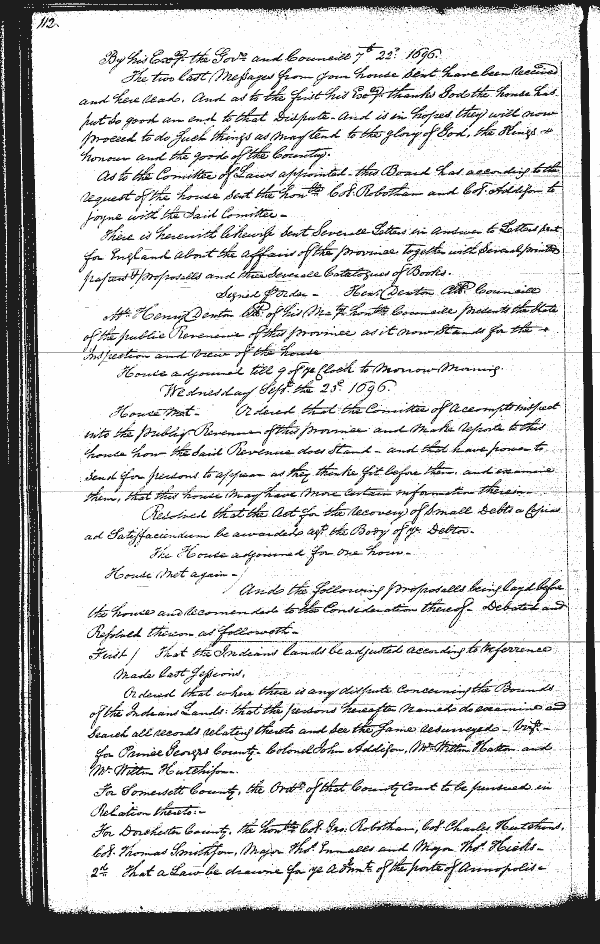 112.
By his Exc.y the Gov.r and Councill 7.th 22.d 1696.
The two last Messages from your house sent have been received
and here read. And as to the first his Exc.y thanks God the house has
put so good an end to that Dispute. And is in hopes they will now
proceed to do such things as may tend to the glory of God, the Kings
honour and the good of the Country.
As to the Comittee of Laws appointed this Board has according to the
request of the house sent the hon.ble Col. Robotham and Col. Addison to
joyne with the said Comittee-
There is herewith likewise sent Severall Letters in answer to Letters sent
for England about the affairs of the province together with Severall printed
papers & proposalls and three Severall Catalogues of Books.
Signed p Order- Hen: Denton Clk Councill
Mr. Henry Denton Clk of his Ma.ty hon.ble Councill presents the State
of the public Revenue of this Province as it now Stands for the
Inspection and view of the house
House adjourned till 9 of ye Clock to Morrow Morning.
Wednesday Sept. the 23.d 1696.
House Met- Ordered that the Comittee of Accompts inspect
into the publiq Revenue of this province and Make reporte to this
house how the said Revenue does Stand- and that have power to
send for persons to appear as they thinke fit before them, and examine
them, that this house may have more certain information therein-
Resolved that the Act for the recovery of Small Debts a Capias
ad Satisfaciendum be awarded agt the Body of ye Debtor-
The House adjourned for one hour-
House Met again-
And the following proposalls being layd before
the house and recomended to the Consideration thereof- Debated and
Resolved thereon as followeth-
First/ That the Indians lands be adjusted according to Referrence
made last Sessions.
Ordered that where there is any dispute Concerning the Bounds
of the Indians Lands: that the persons hereafter named do examine and
search all records relating thereto and see the same resurveyed- Viz.t-
for Prince Georges County- Colonel John Addison, Mr. Willm Hatton and
Mr. Willm Hutchison-
For Somersett County, the Ord.r of that County Court to be pursued in
Relation thereto-
For Dorchester County, the hon.ble Col. Geo: Robotham, Col. Charles Hutchins,
Col. Thomas Smithson, Major Tho.s Ennalls and Major Tho.s Hicks-
2.d That a Law be drawne for ye of the porte of Annopolis-